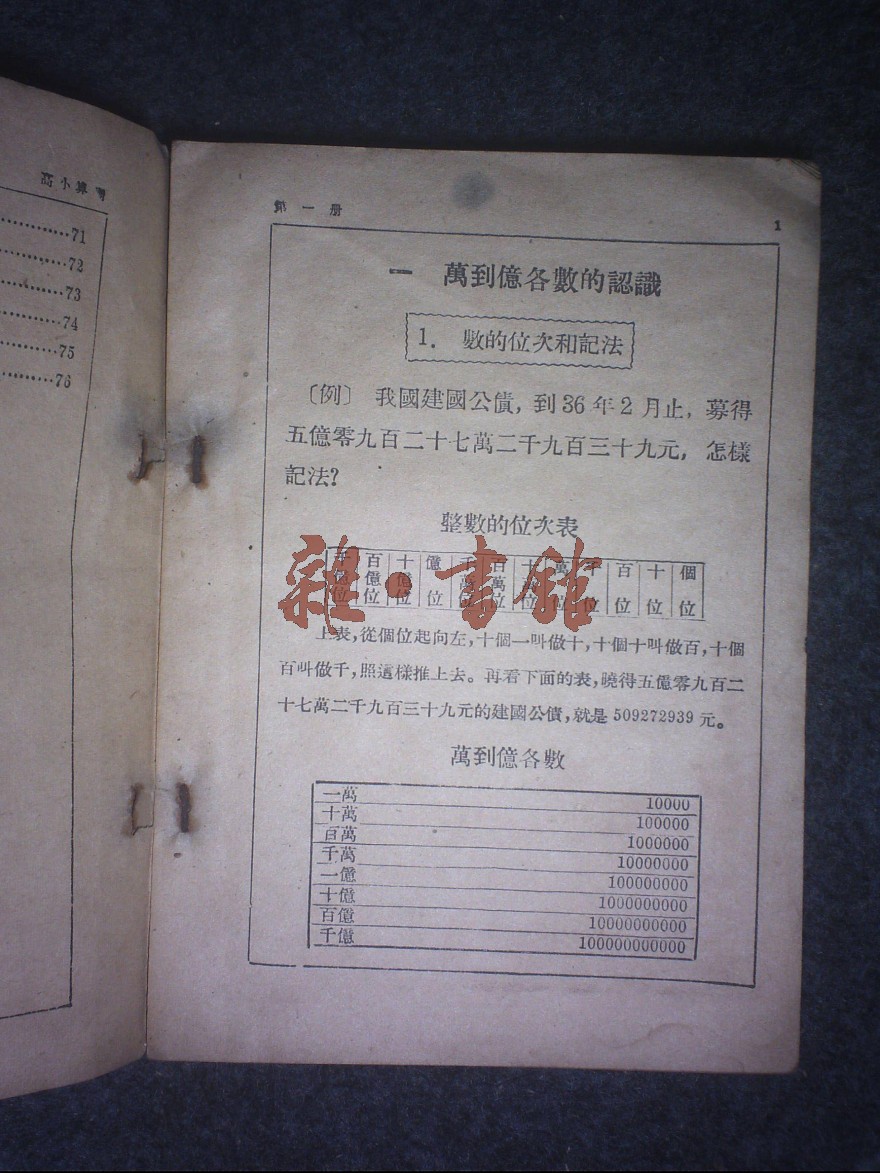 高小算
71
72
73
74
75
76
第一册
1
一 萬到億各數的認識
1. 數的位次和記法
〔例〕 我國建國公債，到36年2月止，募得
五億零九百二十七萬二千九百三十九元，怎樣
記法？
整數的位次表
千億位 百億位 十億位 億位 千萬位 百萬位 十萬位 萬位 千位 百位 十位 個位
上表，從個位起向左，十個一叫做十，十個十叫做百，十個
百叫做千，照這樣推上去。再看下面的表，曉得五億零九百二
十七萬二千九百三十九元的建國公債，就是 509272939 元。
萬到億各數
一萬 10000
十萬 100000
百萬 1000000
千萬 10000000
一億 100000000
十億 1000000000
百億 10000000000
千億 100000000000
雜·書館